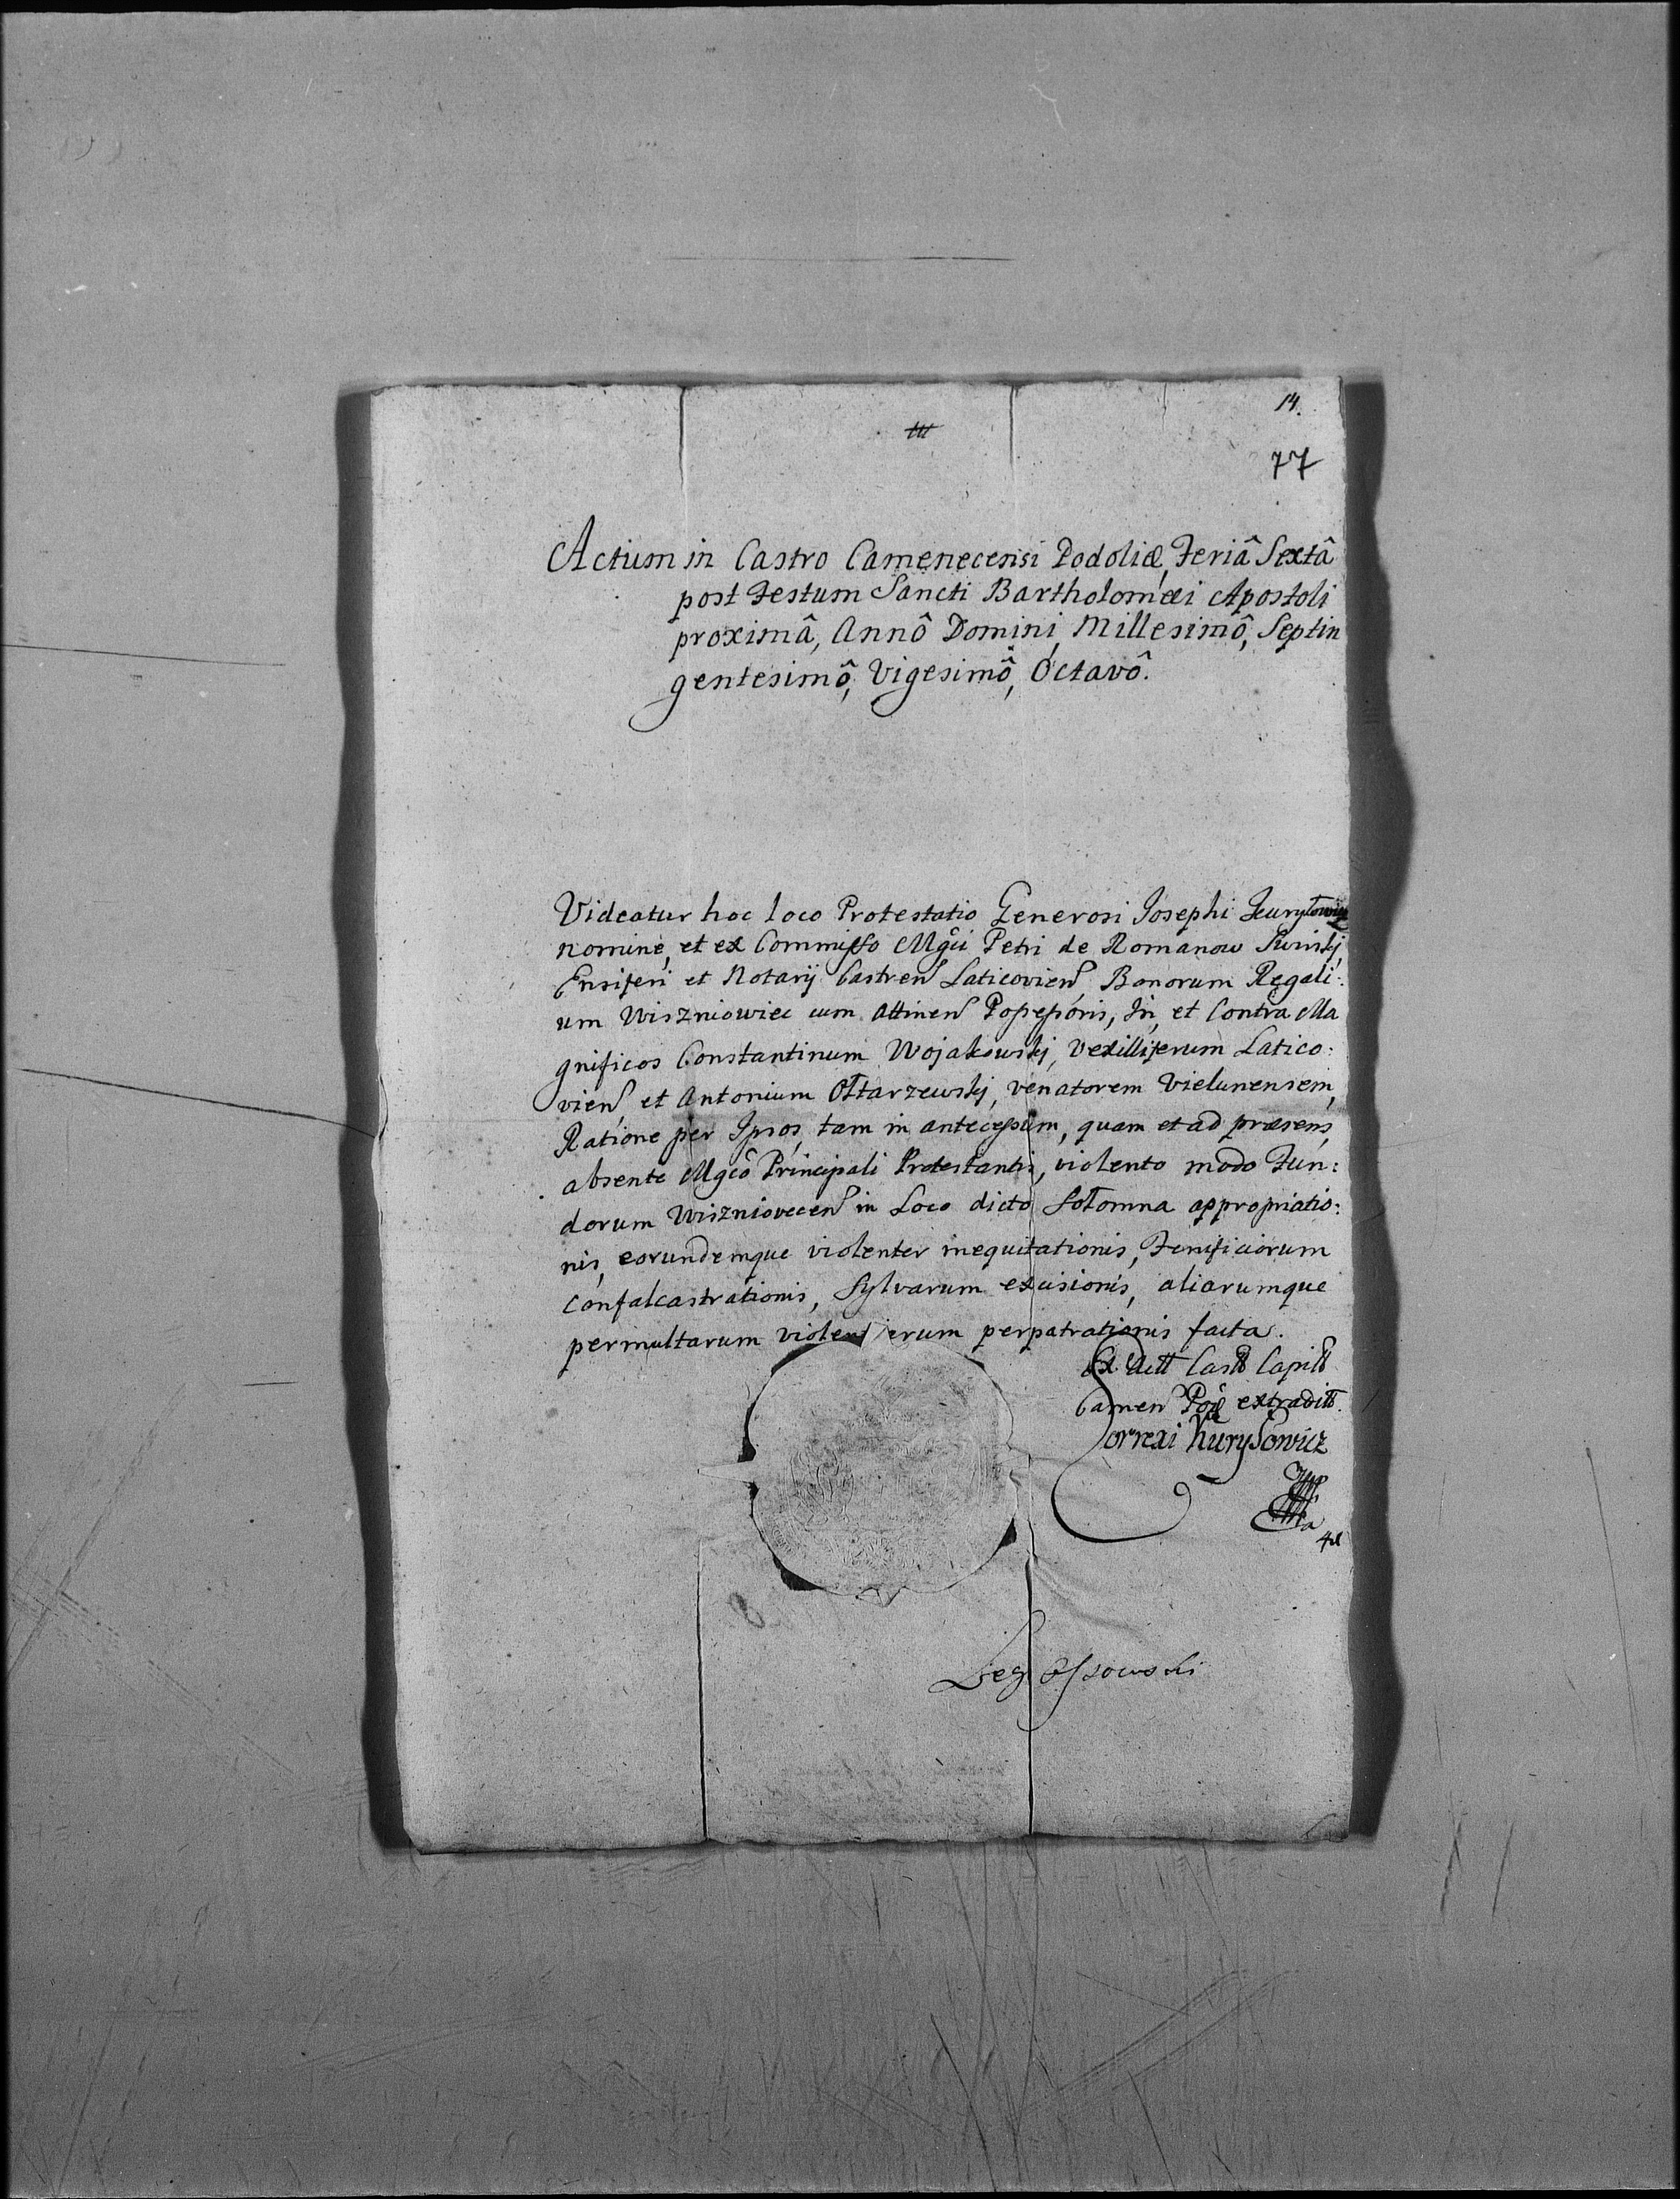 14.
77
Actum in Castro Camenecensi Podoliæ, Feriâ Sextâ
post Festum Sancti Bartholomæi Apostoli
proximâ, Annô Domini, Millesimô, Septin
gentesimô, Vigesimô, Octavô.
Videatur hoc loco Protestatio Generosi Josephi
nomine, et ex Commisso Mgci Petri de Romanow
Ensiferi et Notarij Castren Laticovien, Bonorum Regali:
um Wiszniowiec cum attinen Possessoris, In, et Contra Ma
gnificos Constantinum Wojakowskj, Vexilliferum Latico:
vien, et Antonium Ołtarzewskj, venatorem Vielunensem,
Ratione per Ipsos, tam in antecessum, quam et ad præsens,
absente Mgco Principali Protestanti, violento modo Fun:
dorum Wiszniovecen in Loco dicto Sołomna appropriatio:
nis, eorundemque violenter inequitationis, Fenificiorum
confalcastrationis, Sylvarum excisionis, aliarumque
permultarum violentierum perpatrationis facta.
Ex Actt Castt Capitt
Camen Poð extraditt.
Correxi Kurysowicz
Leg Ossowski